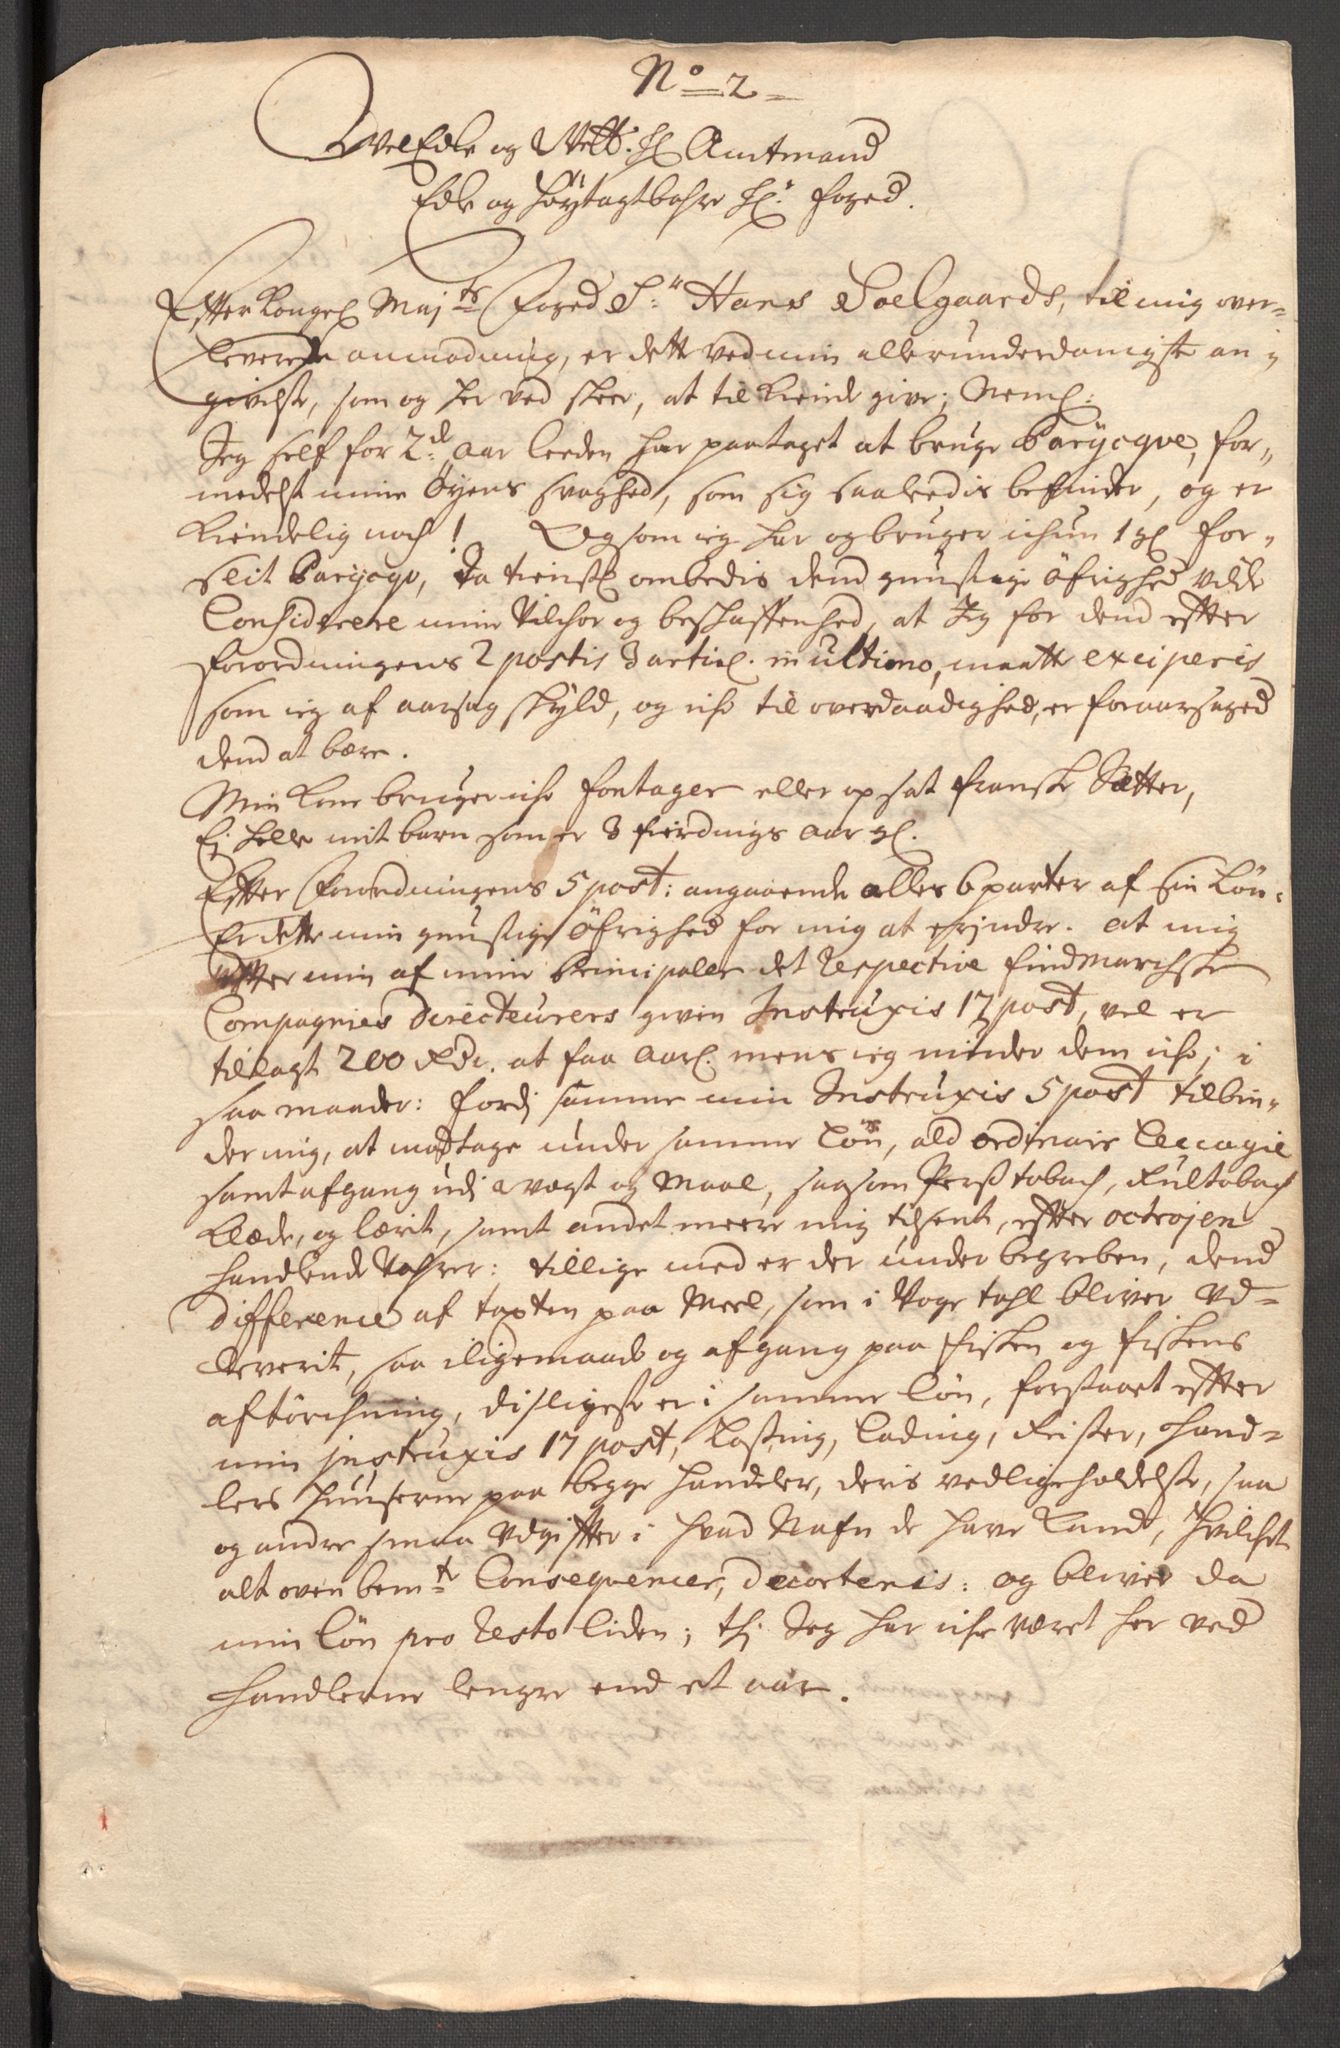 No 2
WelEdle og Welb: H: Amtmand
Edle og Høytagtbahre Hr: Foged.
Effter Kongel Majts Foged Sr: Hans Soelgaards, til mig over-
leverede anmodning, er dette ved min allerunderdanigste an-
givelse, som og her ved skeer, at tilkiende give; Neml:
Jeg self for 2de aar leeden har paataget at bruge Parÿcqve, for-
medelst mine Øyens svaghed, som sig saaledis befinder, og er
kiendelig noch! Og som ieg har og bruger ichun 1 gl for-
slit Parÿcqv, da tienstl ombedis dend gunstige Öfrighed vilde
Considerere mine Vilchor og beschaffenhed, at Jeg for dend effter
forordningens 2 postis 3 articl. in ultimo, maatte exciperis
som ieg af aarsag skyld, og iche til overdaadighed, er foraarsaged
dend at bære.
Min Kone bruger iche fontager eller opsat franske Sætter,
Ej heller mit barn som er 3 fierdings aar gl.
Effter Forordningens 5 post: angaaende alles 6 parter af sin Løn.
Er dette min gunstige Öfrighed for mig at erindre. at mig
effter min af mine Principaler det Respective Findmarchske
Compagnies Directeurers given Instruxis 17 post, vel er
tillagt 200 Rdr. at faa aarl. mens ieg nÿder dem iche; i
saa maader: fordj samme min Instruxis 5 post tilbin-
der mig, at modtage under samme Løn, ald ordinair Leccagie
samt afgang udj vægt og Maal, saasom Perss tobach, Rultobach
Klæde, og lærit, samt andet meere mig tilsent, effter octrojen
handlende Vahrer: tillige med er der under begreben, dend
difference af taxten paa Meel, som i Voge tahl bliver Ud-
leverit, saa iligemaade og afgang paa fisken og fiskens
aftörchning, disligeste er i samme løn, forstaaet effter
min jnstruxis 17 post, Losning, Lading, Reiser, Hand-
lers Huuserne paa begge Handeler, deris vedligeholdelse, saa
og andre smaa Udgiffter i hvad Nafn de have Kand, Hvilchet
alt oven bemt Consequencer, decorteris: og bliver da
min løn pro Resto liden; thj Jeg har iche været her ved
Handlerne lengre end et aar.